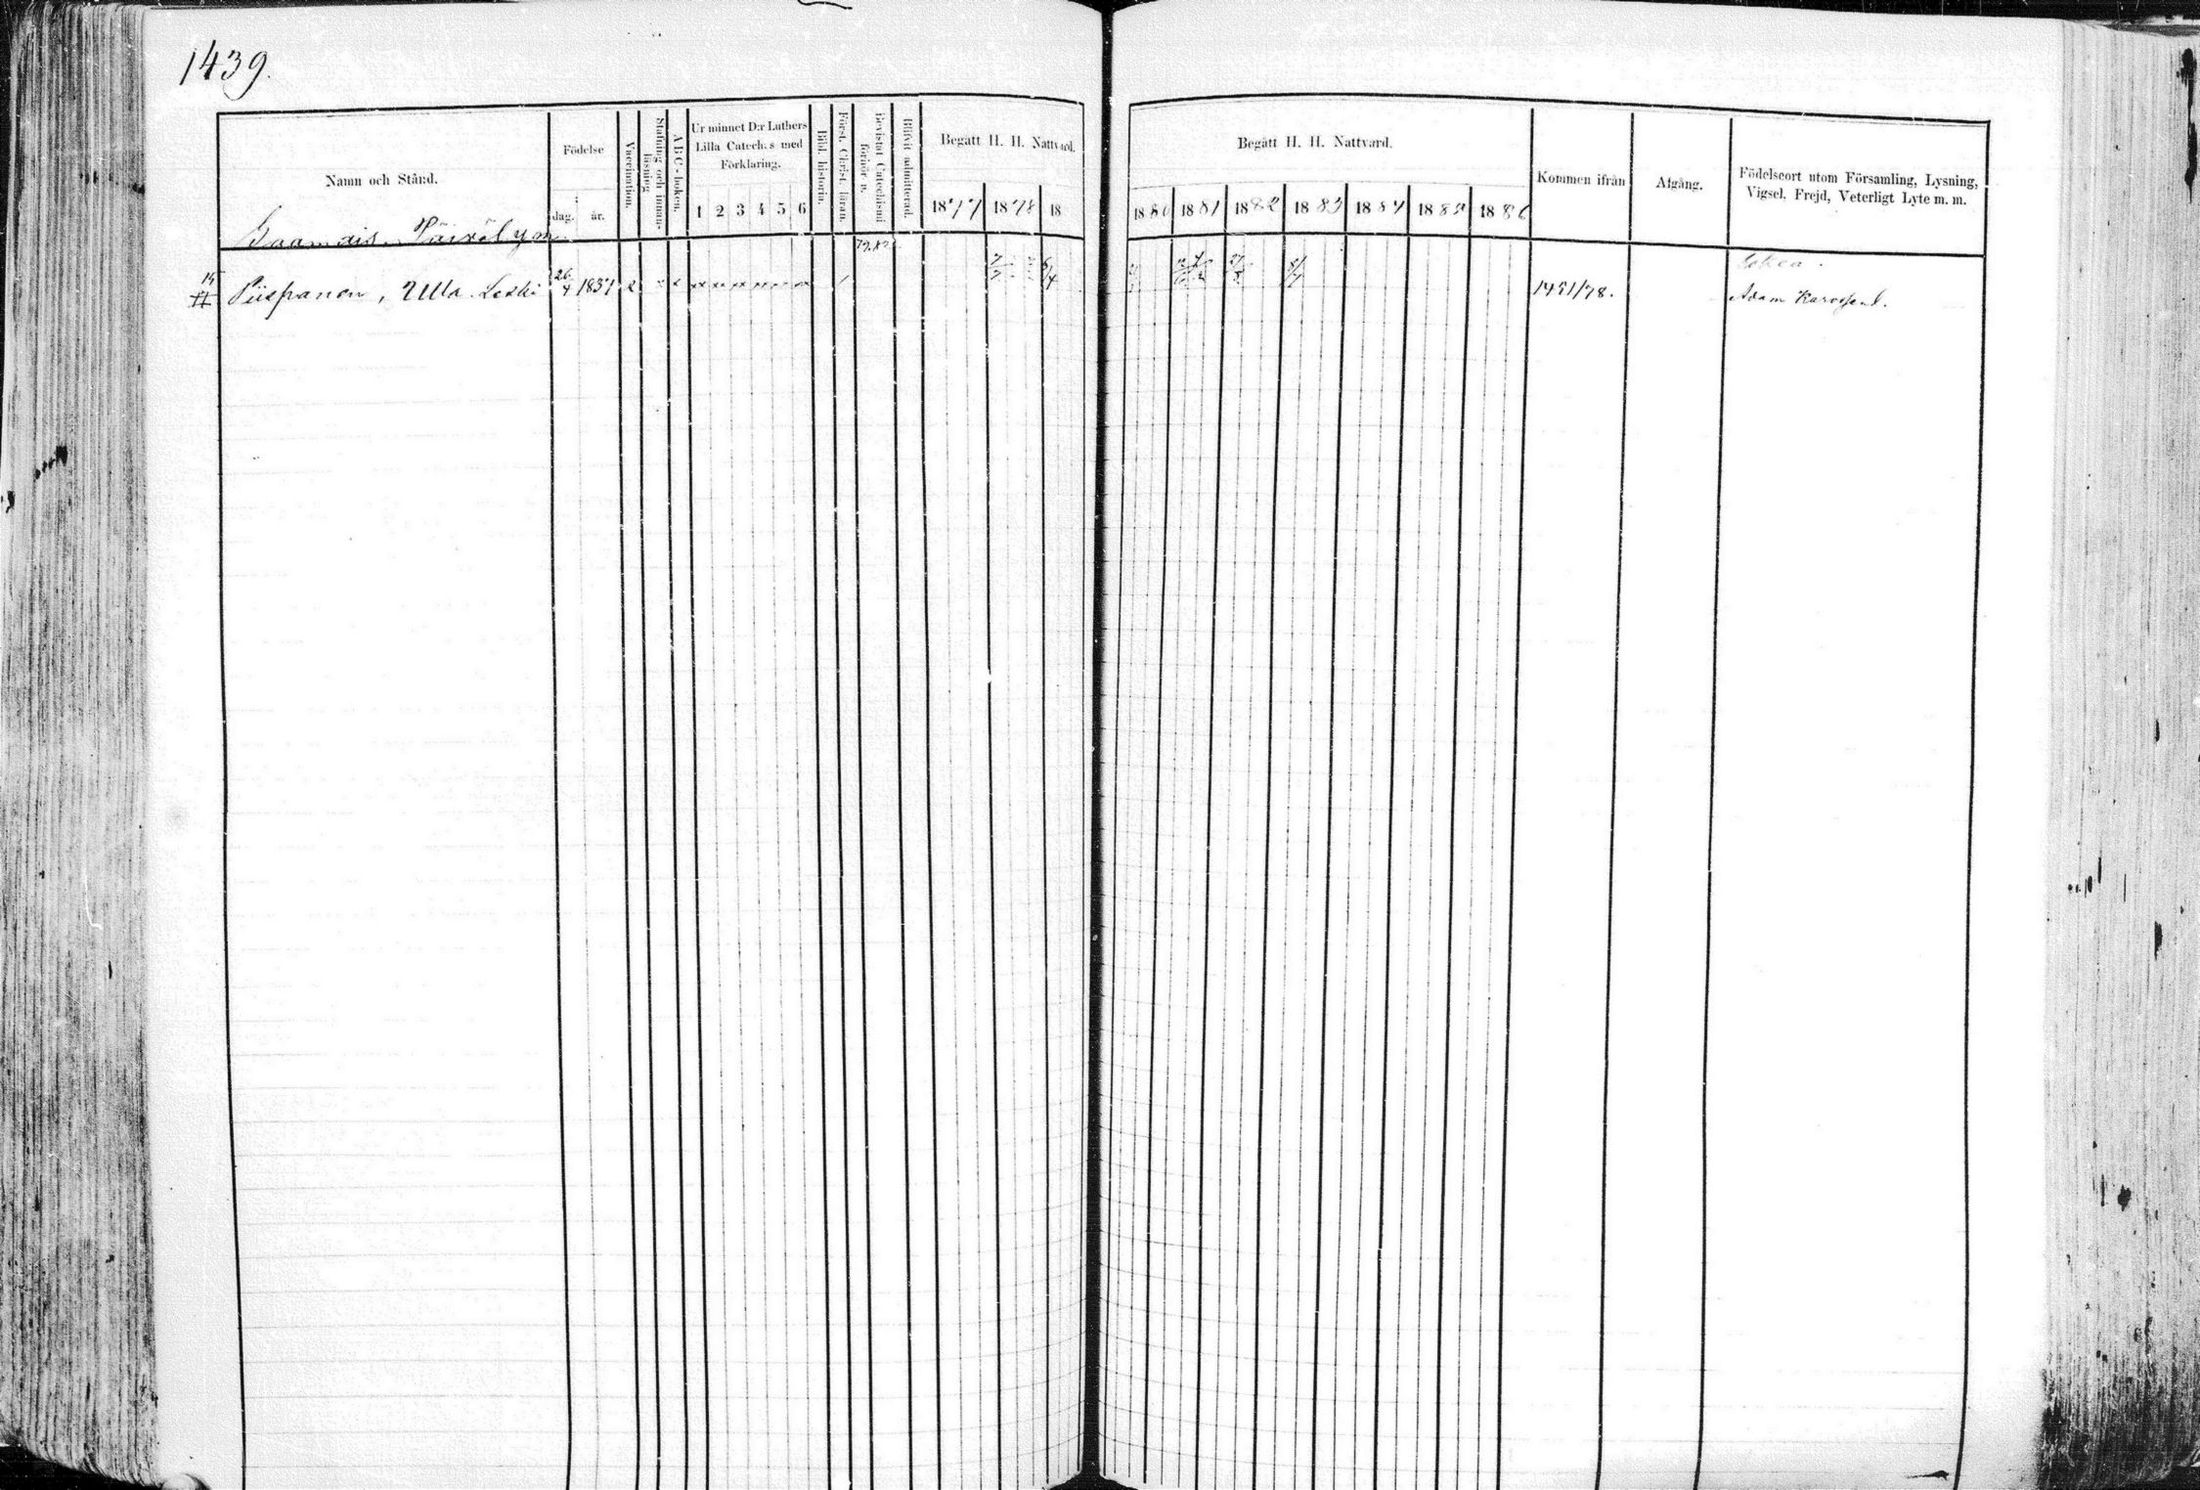 1439.
Namn och Stånd.
Födelse
dag.
år.
Vaccination.
Stafning och innan-
läsning
A B C-boken.
Ur minnet D:r Luthers
Lilla Catech:s med
Förklaring.
1 2 3 4 5 6
Bibl. historia.
Först. Christ. läran.
Bevistat Catechismi
förhör n.
Blifvit admitterad.
Begått H. H. Nattvard.
1877 1878 18
Päivölym
79.82.
15
II
Piispanen, Ulla. Leski 26/4 1837
Begått H. H. Nattvard.
1880 1881 1882 1883 1884 1885 1886
Kommen ifrån
Afgång.
Födelseort utom Församling, Lysning,
Vigsel, Frejd, Veterligt Lyte m. m.
1451/78.
Sokea.
Adam